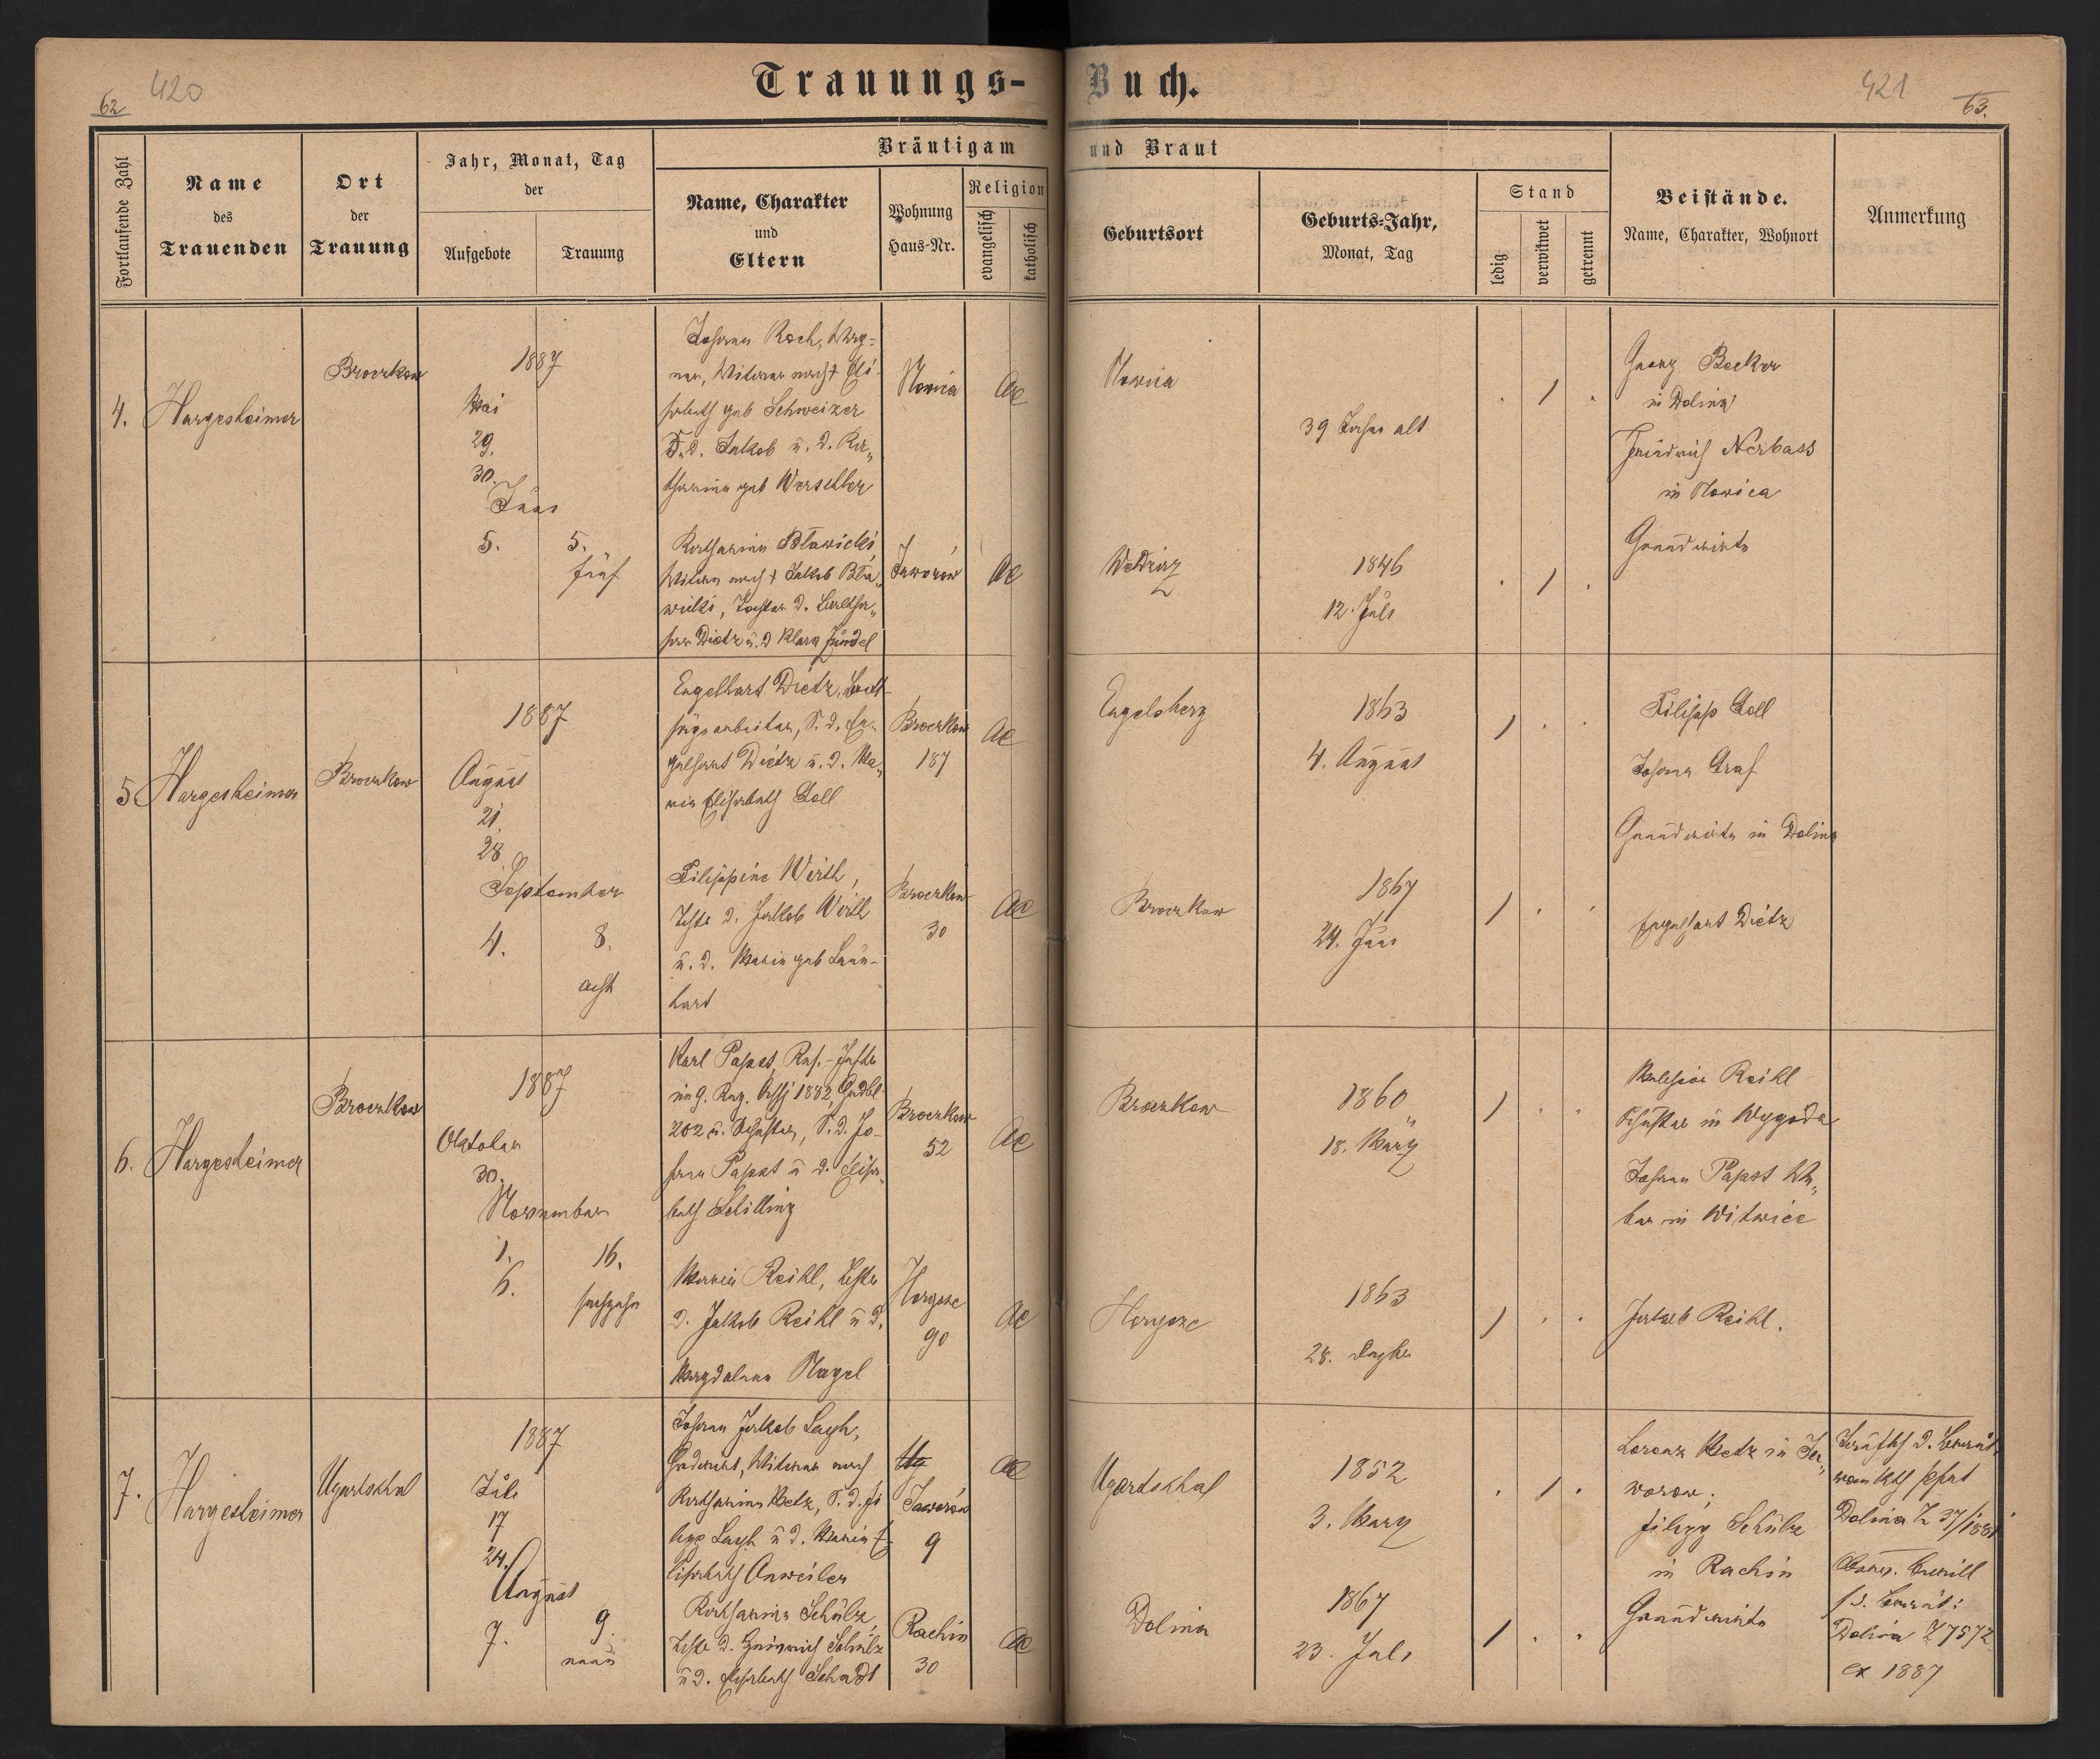 420
62
Trauungs-
Buch.
421
63.
Fortlaufende Zahl
Name
des
Trauenden
Ort
der
Trauung
Jahr, Monat, Tag
der
Aufgebote
Trauung
Bräutigam
und Braut
Name, Charakter
und
Eltern
Wohnung
Haus-Nr.
Religion
evangelisch
katholisch
Geburtsort
Geburts-Jahr,
Monat, Tag
Stand
ledig
verwitwet
getrennt
Beistände.
Name, Charakter, Wohnort
Anmerkung
4.
Hargesheimer
Broczkow
1887
Mai
29.
30.
Juni
5.
5.
fünf
Johann Koch, Wag-
ner, Witwer nach † Eli-
sabeth geb Schweizer
S. d. Jakob u. d. Ka-
tharina geb Werschler
Nowica
AC
Nowica
39 Jahre alt
Georg Becker
in Dolina
Friedrich Nerbass
in Nowica
Grundwirte
Katharina Bławicki
Witwe nach † Jakob Bła-
wicki, Tochter d. Baltha-
sar Dietz u. d Klara Zündel
Jaworow
AC
1846
12. Juli
5
Hargesheimer
Broczkow
1887
August
21.
28.
September
4.
8.
acht
Engelhart Dietz,
arbeiter, S. d. En-
gelhart Dietz u. d. Ma-
ria Elisabeth Doll
Broczkow
187
AC
Engelsberg
1863
4. August
Filipp Doll
Johann Graf
Grundwirte in Dolina
Filippine Werth,
d. Jakob Werth
u. d. Maria geb Leon-
hart
Broczkow
30
AC
Broczkow
1867
24. Juni
Engelhart Dietz
6.
Hargesheimer
Broczkow
1887
Oktober
30.
November
1.
6.
16.
sechzehn
Karl Papst,
202 u. Schuster, S. d. Jo-
hann Papst u d. Elisa-
beth Schilling
Broczkow
52
AC
Broczkow
1860
18. März
Reihl
Schuster in Wygoda
Johann Papst We-
ber in Witwice
Maria Reihl, Tochter
d. Jakob Reihl u d.
Magdalena Nagel
Hoszow
90
AC
Hoszow
1863
28.
Jakob Reihl.
7.
Hargesheimer
Ugartsthal
1887
Juli
17
24.
August
7.
9.
neun
Johann Jakob
Witwer nach
Katharina Betz, S. d. Fi-
lipp u d. Maria E-
lisabeth Anweiler
Jaworow
9
AC
Ugartsthal
1852
3. März
Lorenz Betz in Ja-
worow;
Filipp Schülz
in Rachin
Grundwirte
Dolina Z 37/1881
Dolina Z 7572
ex 1887
Katharina Schülz,
d. Heinrich Schülz
u d. Elisabeth Schadt
Rachin
30
AC
Dolina
1867
23. Juli